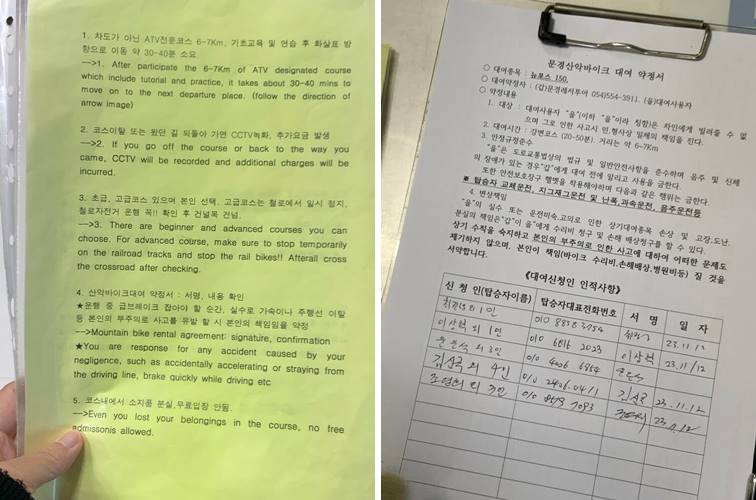 1. 차도가 아닌 ATV전문코스 6-7Km, 기초교육 및 연습 후 화살표 방
향으로 이동 약 30-40분 소요.
-->1. After participate the 6-7Km of ATV designated course
which include tutorial and practice, it takes about 30-40 mins to
move on to the next departure place. (follow the direction of
arrow image)
2. 코스이탈 또는 왔던 길 되돌아 가면 CCTV녹화, 추가요금 발생
-->2. If you go off the course or back to the way you
came, CCTV will be recorded and additional charges will be
incurred.
3. 초급, 고급코스 있으며 본인 선택, 고급코스는 철로에서 일시 정지,
철로자전거 운행 꼭!! 확인 후 건널목 건넘.
-->3. There are beginner and advanced courses you can
choose. For advanced course, make sure to stop temporarily
on the railroad tracks and stop the rail bikes!! Afterall cross
the crossroad after checking.
4. 산악바이크대여 약정서 : 서명, 내용 확인
★운행 중 급브레이크 잡아야 할 순간, 실수로 가속이나 주행선 이탈
등 본인의 부주의로 사고를 유발 할 시 본인의 책임임을 약정
-->Mountain bike rental agreement: signature, confirmation
★You are response for any accident caused by your
negligence, such as accidentally accelerating or straying from
the driving line, brake quickly while driving etc
5. 코스내에서 소지품 분실,무료입장 안됨.
-->Even you lost your belongings in the course, no free
admissonis allowed.
문경산악바이크 대여 약정서
○ 대여종목 : 뉴포스 150.
○ 대여약정자 : (갑)문경레저투어 054)554-3911. (을)대여사용자
○ 약정내용
1. 대상 : 대여사용자 "을"(이하 "을"이라 칭함)은 차인에게 빌려줄 수 없
으며 그로 인한 사고시 민,형사상 일체의 책임을 진다.
2. 대여시간 : 강변코스 (20-50분). 거리는 약 6-7Km
3. 안정규정준수
"을"은 도로교통법상의 법규 및 일반안전사항을 준수하며 음주 및 신체
의 장애가 있는 경우"갑"에게 대여 전에 알리고 사용을 금한다.
또한 안전보호장구 헬멧을 착용해야하며 다음과 같은 행위는 금한다.
※ 탑승자 교체운전, 지그재그운전 및 난폭,과속운전, 음주운전등
4. 변상책임
"을"의 실수 또는 운전미숙,고의로 인한 상기대여종목 손상 및 고장,도난.
분실의 책임은"갑"이 을"에게 수리비 청구 및 손해 배상청구를 할 수 있다.
상기 수칙을 숙지하고 본인의 부주의로 인한 사고에 대하여 어떠한 문제도
제기하지 않으며. 본인이 책임(바이크 수리비,손해배상,병원비등) 질 것을
서약합니다.
《대여신청인 인적사항》
신 청 인(탑승자이름) 탑승자대표전화번호 서 명 일 자
외 1인 010 8838 3754 23.11.12
이상혁 외 1인 010 6816 2023 이상혁 23.11/12
윤 외 3인 010 4006
김성국 외 4인 010 2406.0411 김성국 23.11.12
조영희 외 2인 010 8573 7093 23.11.12